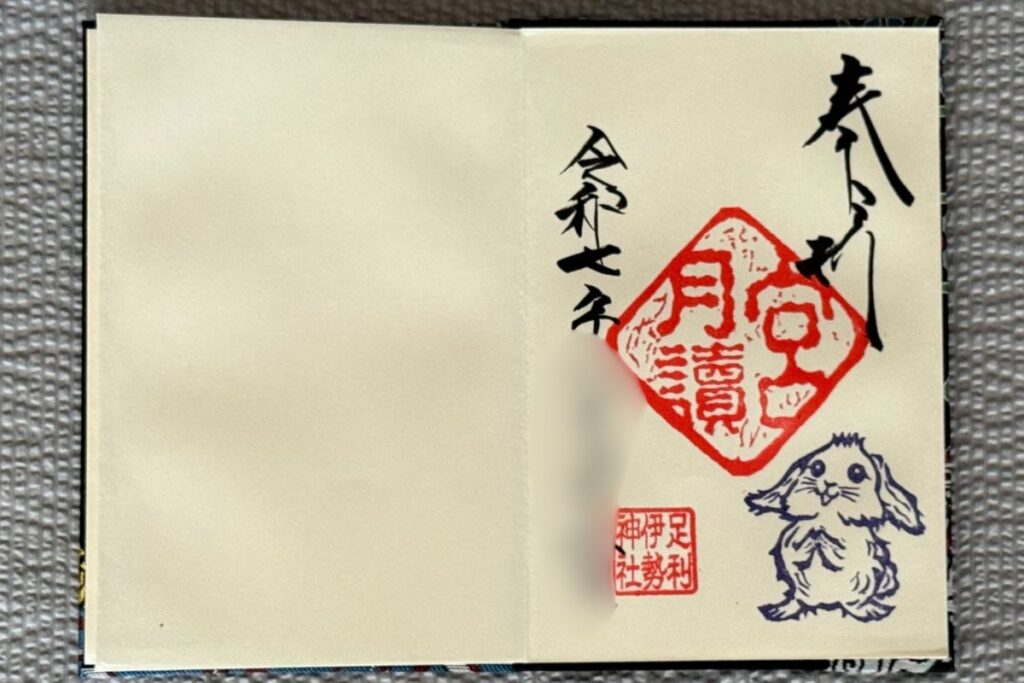 奉
月讀
宮
令和七年
足利
伊勢
神社